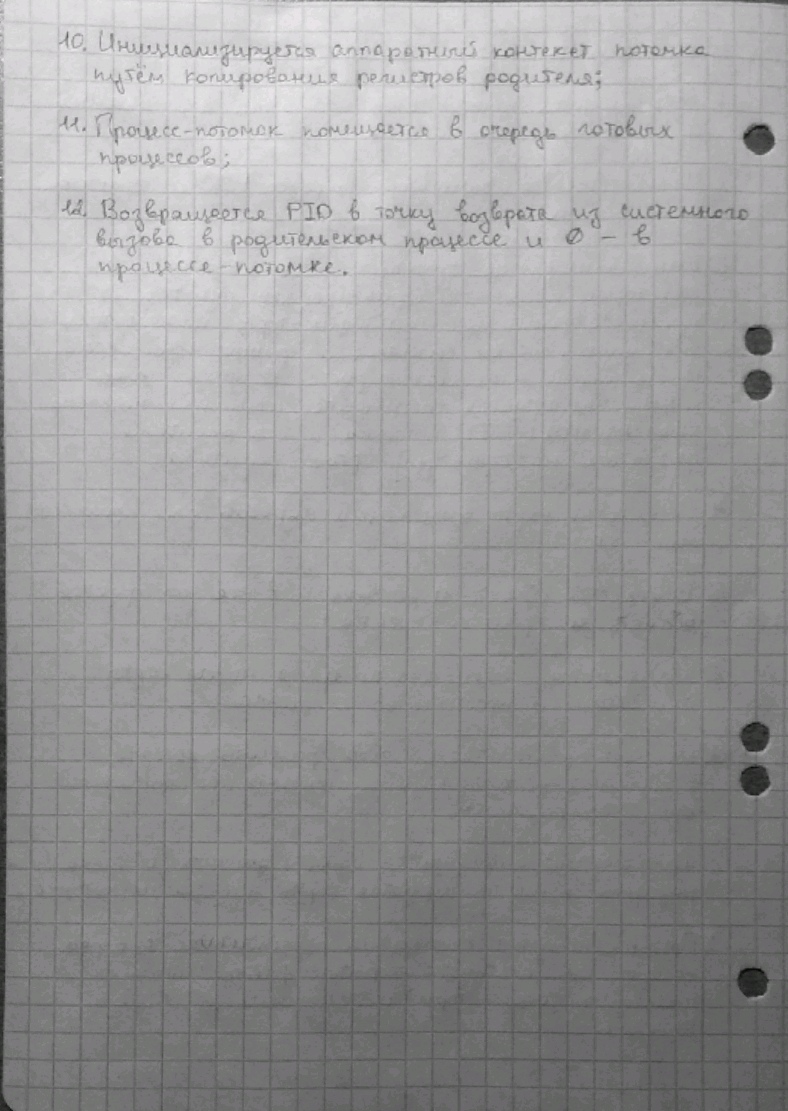 10. Инициализируется аппаратный контекст потомка
путём копирования регистров родителя;
11. Процесс-потомок помещается в очередь готовых
процессов;
12. Возвращается PID в точку возврата из системного
вызова в родительском процессе и 0 - в
процессе-потомке.